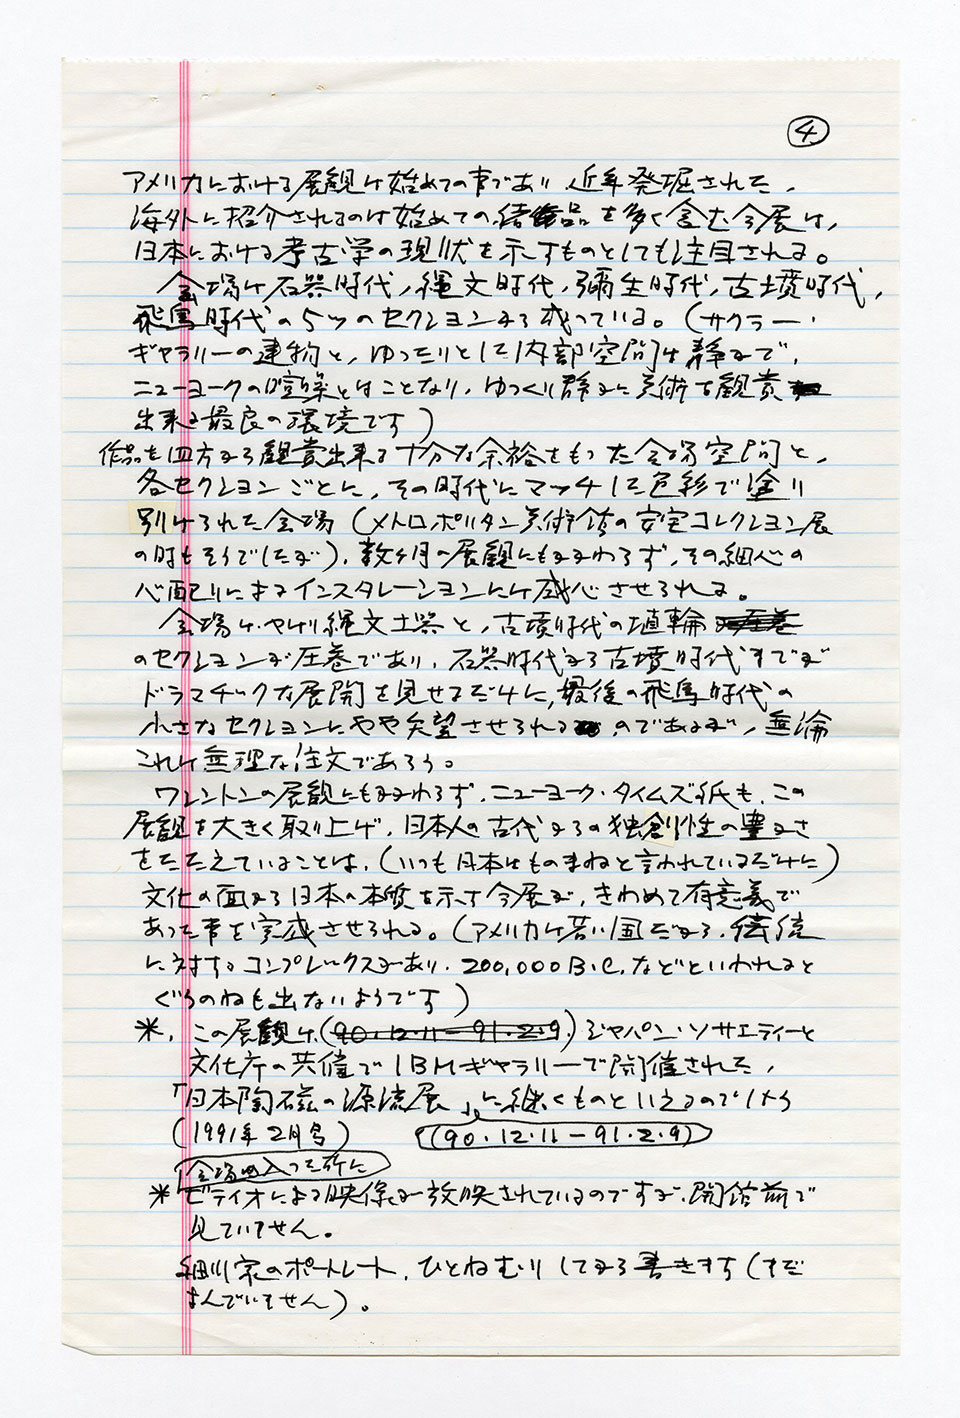 ④
アメリカにおける展観は始めての事であり 近年発掘された、
海外に紹介されるのは始めての 品を多く含む今展は、
日本における考古学の現状を示すものとしても注目される。
会場は石器時代、縄文時代、弥生時代、古墳時代、
飛鳥時代の5つのセクションから成っている。(サクラー・
ギャラリーの建物と、ゆったりとした内部空間は静かで、
ニューヨークの喧噪とはことなり、ゆっくり静かに美術を観賞
出来る最良の環境です)
作品を四方から観賞出来る十分な余裕をもった会場空間と、
各セクションごとに、その時代にマッチした色彩で塗り
別けられた会場(メトロポリタン美術館の安宅コレクション展
の時もそうでしたが)、数ヶ月の展観にもかかわらず、その細心の
心配りによるインスタレーションには感心させられる。
会場は、やはり縄文土器と、古墳時代の埴輪
のセクションが圧巻であり、石器時代から古墳時代までが
ドラマチックな展開を見せるだけに、最後の飛鳥時代の
小さなセクションにやや失望させられるのであるが、無論
これは無理な注文であろう。
ワシントンの展観にもかかわらず、ニューヨーク・タイムズ紙も、この
展観を大きく取り上げ、日本人の古代からの独創性の豊かさ
をたたえていることは、(いつも日本はものまねと言われているだけに)
文化の面から日本の本質を示す今展が、きわめて有意義で
あった事を完成させられる。(アメリカは若い国だから、伝統
に対するコンプレックスがあり、200,000B.C.などといわれると
ぐうのねも出ないようです)
*、この展観は、(90.12.11−91.2.9)ジャパン・ソサエティーと
文化庁の共催でIBMギャラリーで開催された、
「日本陶磁の源流展」に継ぐものといえるのでしょう
(1991年2月号) (90.12.11−91.2.9)
会場の入った所に
*ビディオによる映像が放映されているのですが、開館前で
見ていません。
細川家のポートレート、ひとねむりしてから書きます(まだ
よんでいません)。